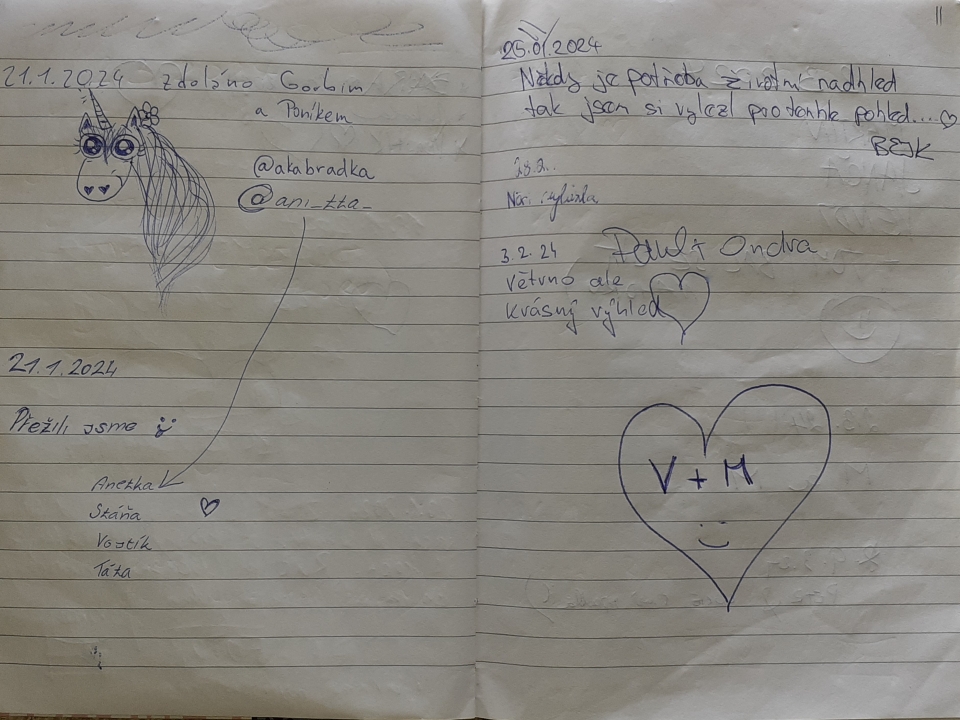 21.1.2024 zdoláno Gorbim
a Poníkem
@akabradka
@ani_tta_
21.1.2024
Přežili jsme
Anetka
Stáňa
Vojtík
Táta
11
25.01.2024
Někdy je potřeba životní nadhled
tak jsem si vylezl pro tenhle pohled....
BEJK
28.2..
3.2.24 Ondra
větrno ale
krásný výhled
V + M